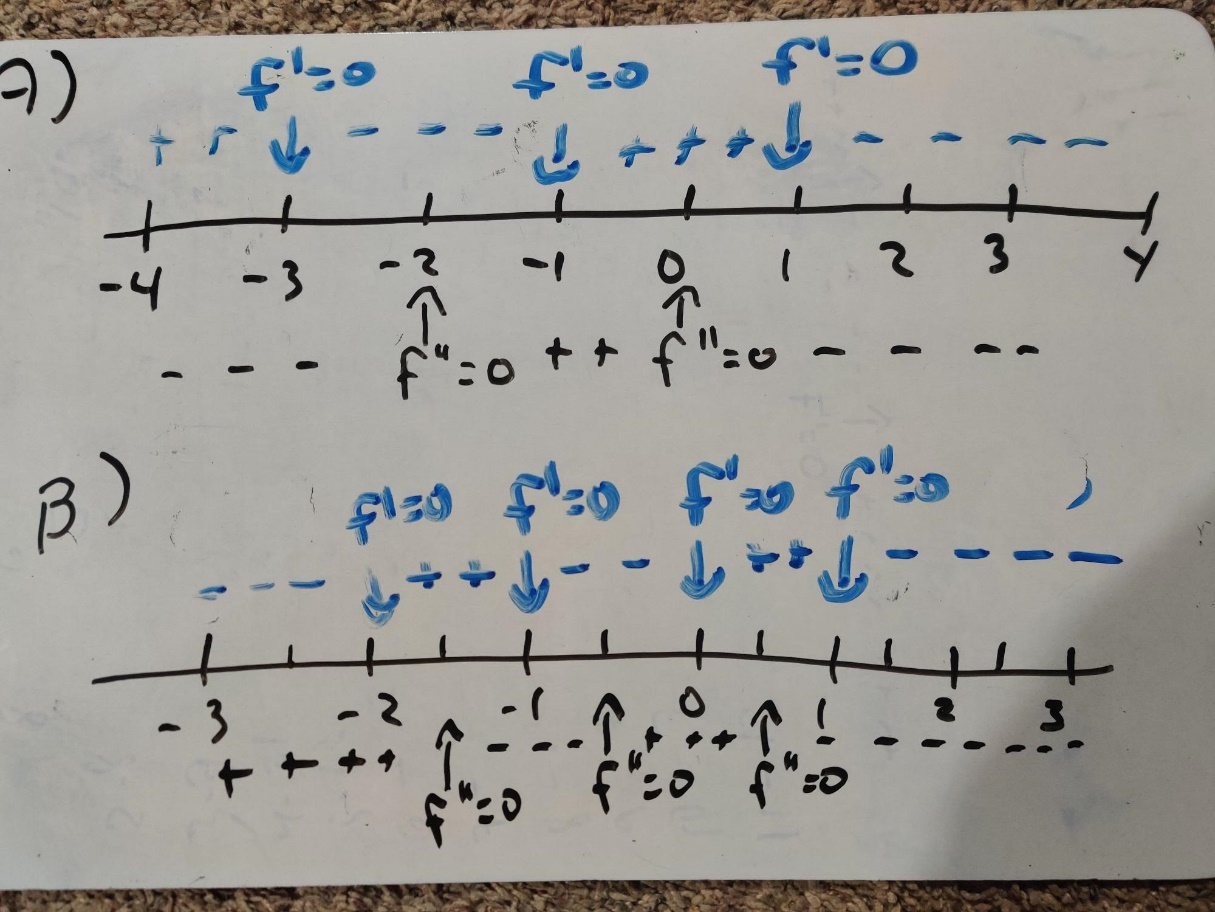 A)
f'=0 f'=0 f'=0
+ + - - - + + + - - - -
-4 -3 -2 -1 0 1 2 3 4
- - - f"=0 + + f"=0 - - - -
B)
f'=0 f'=0 f"=0 f"=0
- - - + + - - + + - - - -
-3 -2 -1 0 1 2 3
+ + + + - - - + + + - - - - - - - -
f"=0 f"=0 f"=0